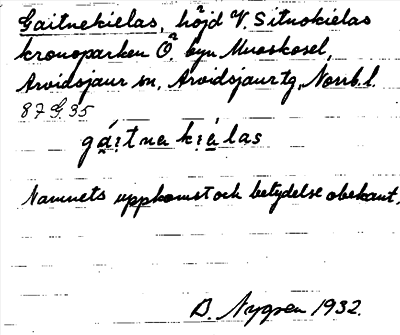 Gaitnekielas, höjd V. Sitnokielas
kronoparken Ö. byn Muoskosel,
Arvidsjaur sn, Arvidsjaur tg, Norrb. l.
87 G. 35
gáitnə kiélas
Namnets uppkomst och betydelse obekant.
B. Nygren 1932.